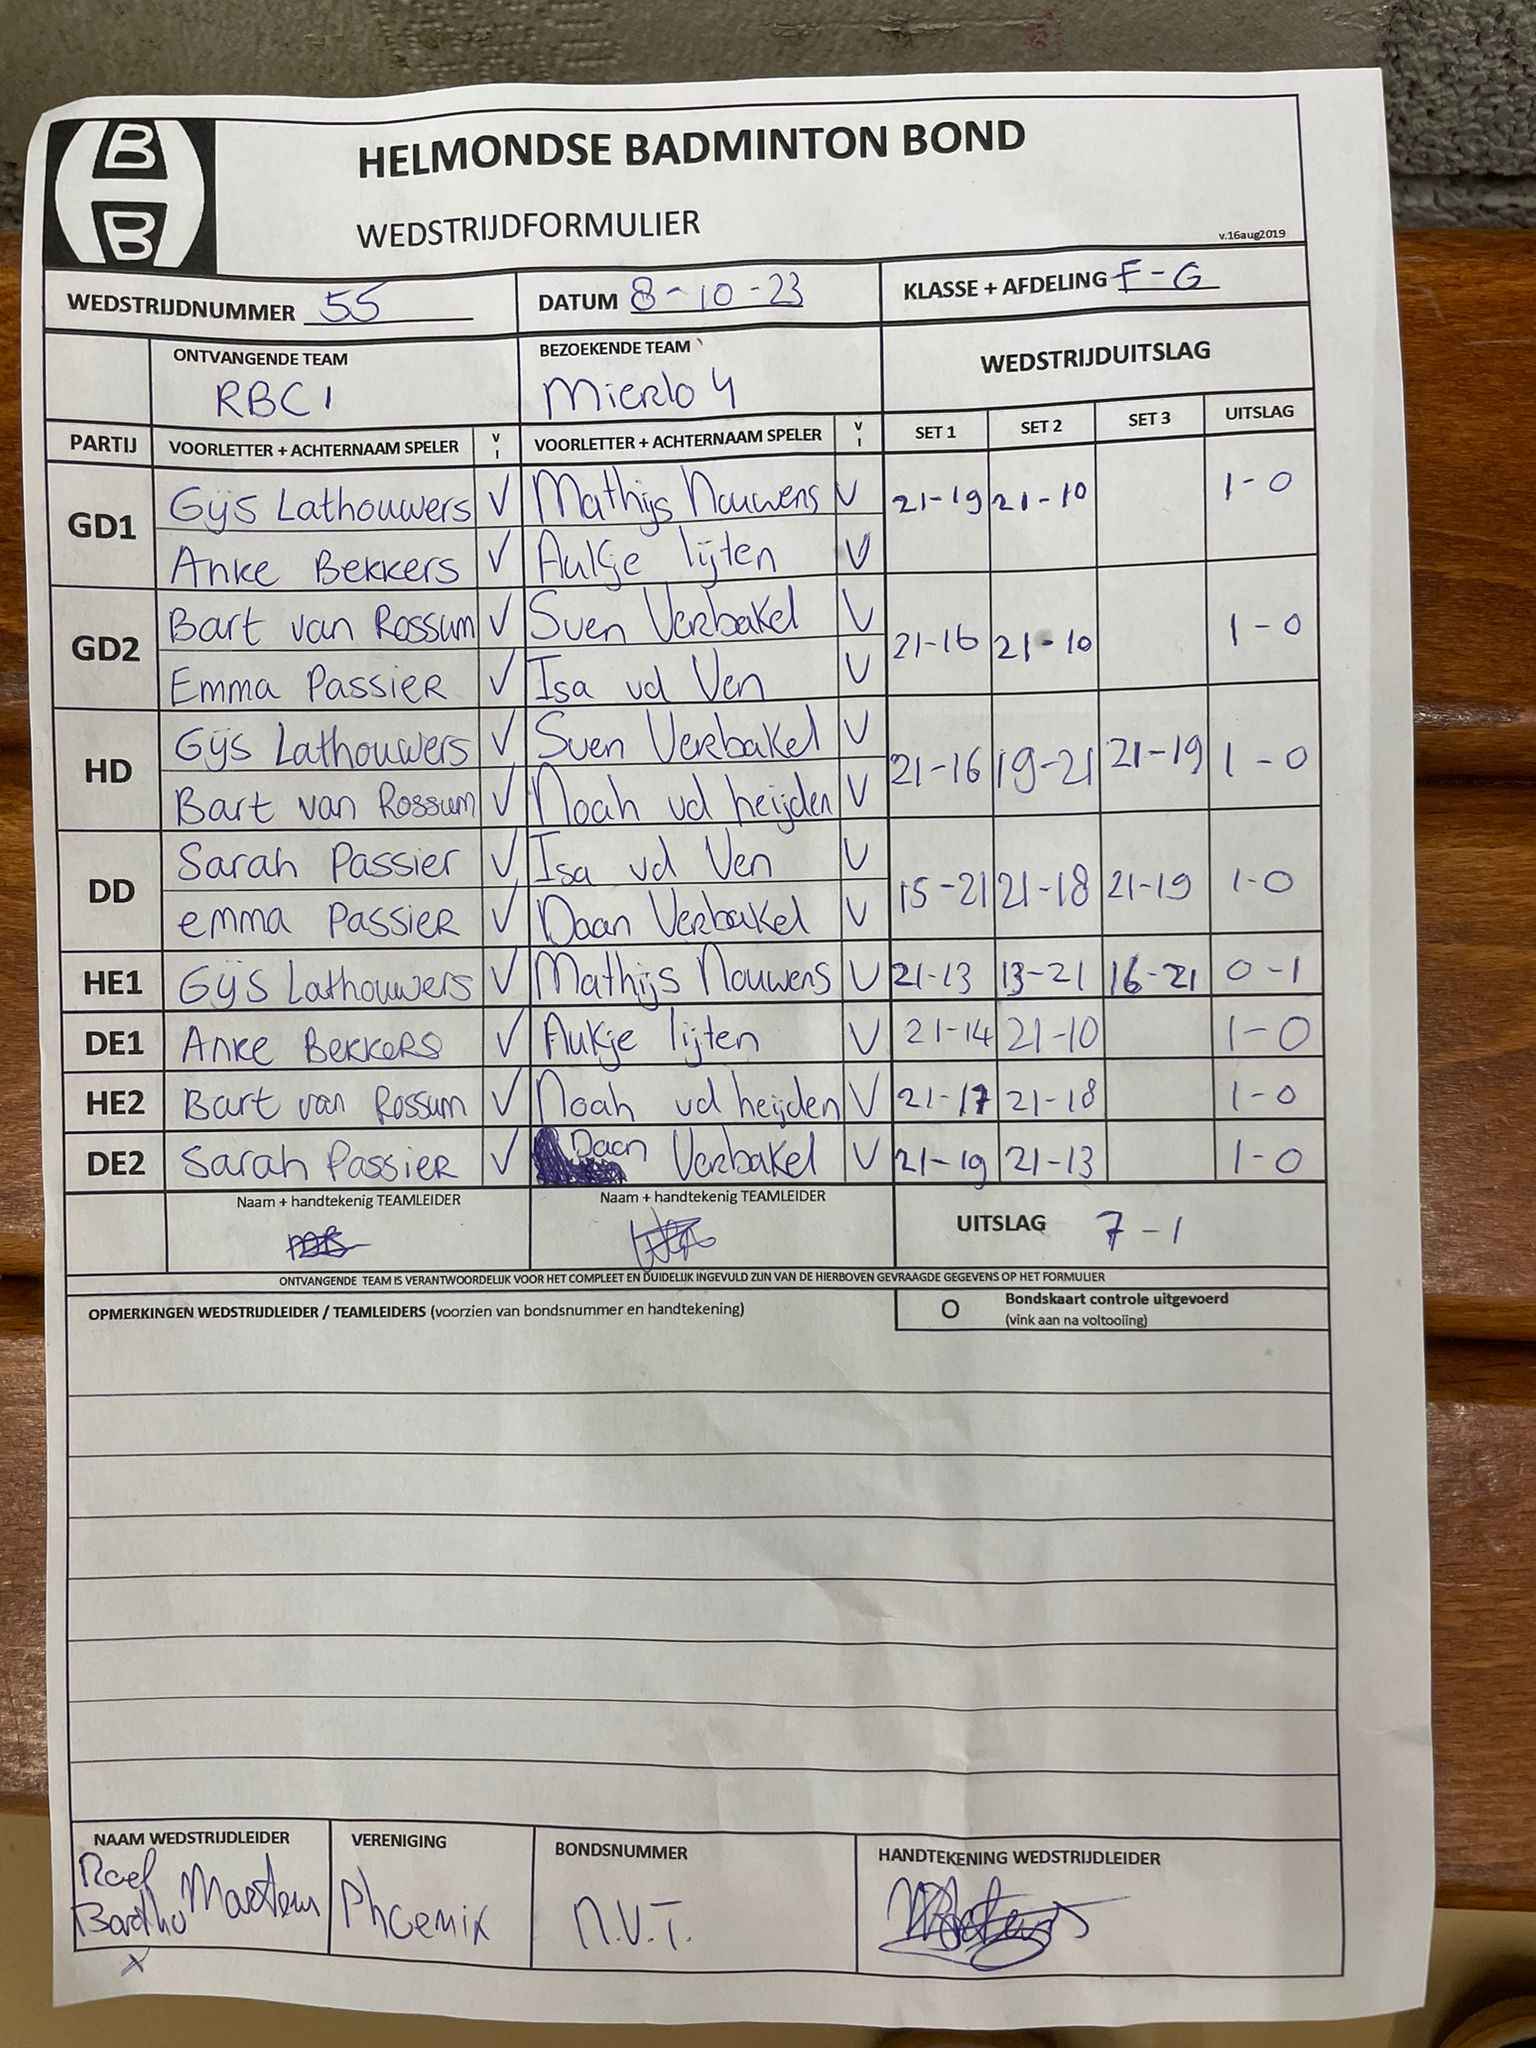 B
B
HELMONDSE BADMINTON BOND
WEDSTRIJDFORMULIER
v.16aug2019
WEDSTRIJDNUMMER 55 DATUM 8-10-23 KLASSE + AFDELING F-G
ONTVANGENDE TEAM BEZOEKENDE TEAM WEDSTRIJDUITSLAG
RBC 1 Mierlo 4
PARTIJ VOORLETTER + ACHTERNAAM SPELER V I VOORLETTER + ACHTERNAAM SPELER V I SET 1 SET 2 SET 3 UITSLAG
GD1 Gijs Lathouwers V Mathijs Nouwens V 21-19 21-10 1-0
Anke Bekkers V Aukje lijten V
GD2 Bart van Rossum V Sven Verbakel V 21-16 21-10 1-0
Emma Passier V Isa vd Ven V
HD Gijs Lathouwers V Sven Verbakel V 21-16 19-21 21-19 1-0
Bart van Rossum V Noah vd heijden V
DD Sarah Passier V Isa vd Ven V 15-21 21-18 21-19 1-0
emma Passier V Daan Verbakel V
HE1 Gijs Lathouwers V Mathijs Nouwens V 21-13 13-21 16-21 0-1
DE1 Anke Bekkers V Aukje lijten V 21-14 21-10 1-0
HE2 Bart van Rossum V Noah vd heijden V 21-17 21-18 1-0
DE2 Sarah Passier V Daan Verbakel V 21-19 21-13 1-0
Naam + handtekenig TEAMLEIDER Naam + handtekenig TEAMLEIDER UITSLAG 7-1
ONTVANGENDE TEAM IS VERANTWOORDELIJK VOOR HET COMPLEET EN DUIDELIJK INGEVULD ZIJN VAN DE HIERBOVEN GEVRAAGDE GEGEVENS OP HET FORMULIER
OPMERKINGEN WEDSTRIJDLEIDER / TEAMLEIDERS (voorzien van bondsnummer en handtekening) O Bondskaart controle uitgevoerd
(vink aan na voltooiing)
NAAM WEDSTRIJDLEIDER VERENIGING BONDSNUMMER HANDTEKENING WEDSTRIJDLEIDER
Phoenix N.V.T.
x